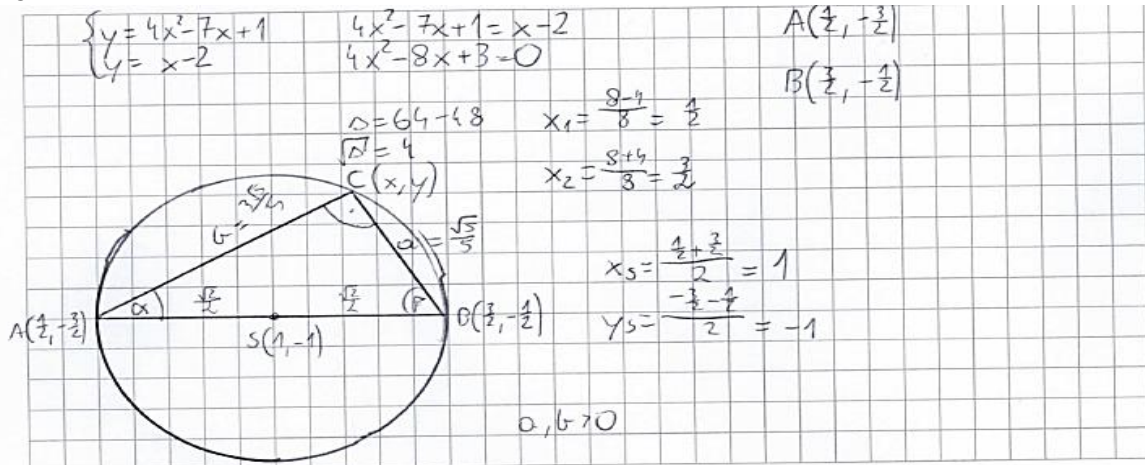 {y = 4x²-7x+1
{y = x-2
4x²-7x+1 = x-2
4x²-8x+3=0
A(1/2, -3/2)
B(3/2, -1/2)
Δ=64-48
√Δ = 4
x₁ = (8-4)/8 = 1/2
x₂ = (8+4)/8 = 3/2
C(x,y)
b =
a = √5/5
α
√2/2
√2/2
β
A(1/2, -3/2)
S(1,-1)
B(3/2, -1/2)
xs = (1/2+3/2)/2 = 1
ys = (-3/2-1/2)/2 = -1
a, b > 0